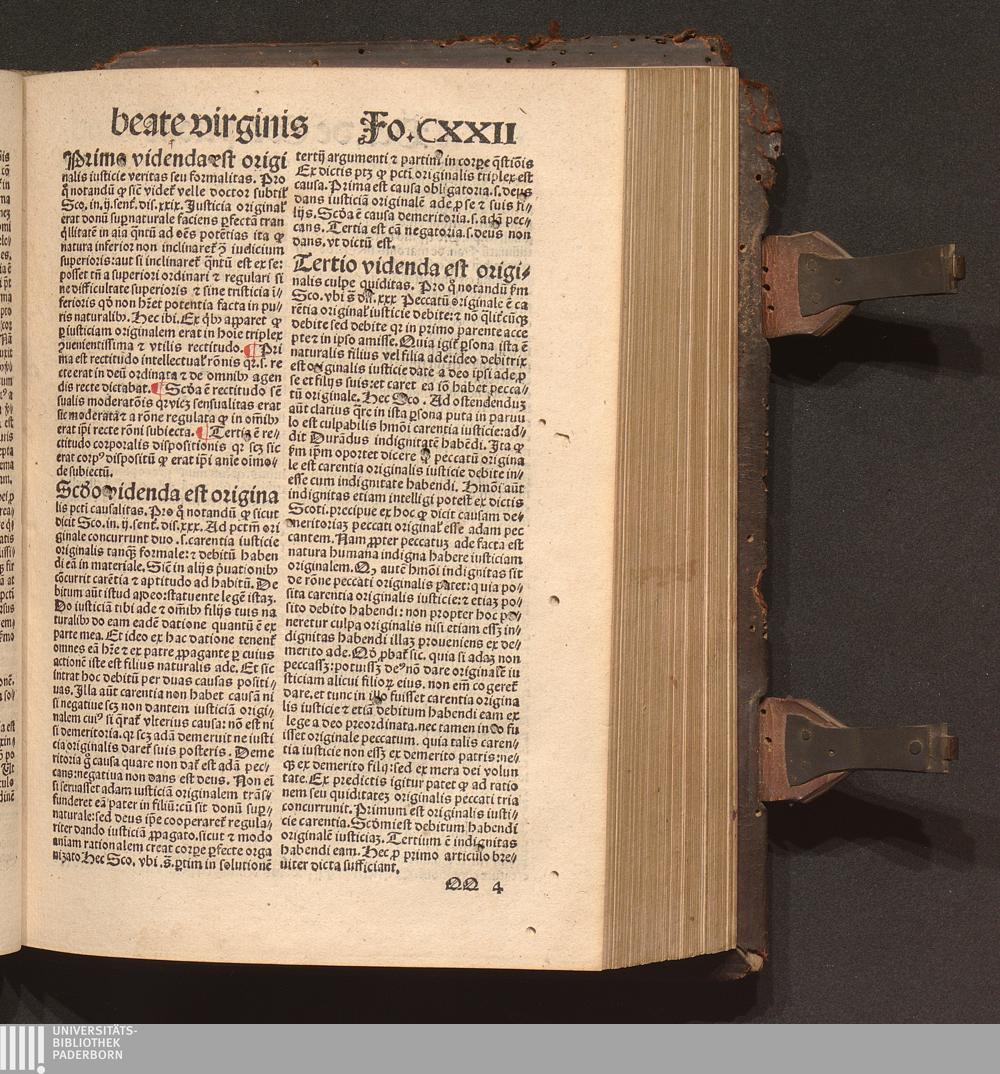 beate virginis Fo.CXXII
Primo videnda est origi
nalis iusticie veritas seu formalitas. Pro
q̄ notandū ꝙ sic̄ videt᷑ velle doctor subtil᷑
Sco. in. ij. sent̄. dis. xxix. Justicia original᷑
erat donū sup̱naturale faciens ꝑfectā tran
q̇llitatē in aīa q̄ntū ad oēs potētias ita ꝙ
natura inferior non inclinaret᷑ ꝯ̄ iudicium
superioris: aut si inclinaret᷑ q̄ntū est ex se:
posset tn̄ a superiori ordinari ⁊ regulari si
ne difficultate superioris ⁊ sine tristicia ī/
ferioris qḋ non hr̄et potentia facta in pu/
ris naturalibꝰ. Hec ibi. Ex q̇bꝰ apparet ꝙ
ꝑ iusticiam originalem erat in hoīe triplex
ꝯuenientissima ⁊ vtilis rectitudo. ¶ Pri
ma est rectitudo intellectual᷑ rōnis qr̄. s. re
cte erat in deū ordinata ⁊ de omnibꝰ agen
dis recte dictabat. ¶ Scḋa ē rectitudo sē
sualis moderatōis qr̄ vicꝫ sensualitas erat
sic moderata ⁊ a rōne regulata ꝙ in om̄ibꝰ
erat ip̄i recte rōni subiecta. ¶ Tertia ē re/
ctitudo corporalis dispositionis qr̄ scꝫ sic
erat corpꝰ dispositū ꝙ erat ip̄i anīe oīmo/
de subiectū.
Scḋo videnda est origina
lis pcti causalitas. Pro q̄ notandū ꝙ sicut
dicit Sco. in. ij. sent̄. dis. xxx. Ad pctm̄ ori
ginale concurrunt duo .s. carentia iusticie
originalis tanqꝫ formale: ⁊ debitū haben
di eā in materiale. Sic̄ in alijs p̄uationibꝰ
cōcurrit carētia ⁊ aptitudo ad habitū. De
bitum aūt istud a deo: statuente legē istaꝫ.
Do iusticiā tibi ade ⁊ om̄ibꝰ filijs tuis na
turalibꝰ do eam eadē datione quantū ē ex
parte mea. Et ideo ex hac datione tenent᷑
omnes eā hr̄e ⁊ ex patre ꝓpagante ꝑ cuius
actionē iste est filius naturalis ade. Et sic
intrat hoc debitū per duas causas positi/
uas. Illa aūt carentia non habet causā ni
si negatiue scꝫ non dantem iusticiā origi/
nalem cuiꝰ si q̄rat᷑ vlterius causa: nō est ni
si demeritoria. qr̄ scꝫ adā demeruit ne iusti
cia originalis daret᷑ suis posteris. Deme
ritoria g̊ causa quare non dat᷑ est adā pec/
cans: negatiua non dans est deus. Non ei
si seruasset adam iusticiā originalem trāſ/
funderet eā pater in filiū: cū sit donū sup̱/
naturale: sed deus ip̄e cooperaret᷑ regula/
riter dando iusticiā ꝓpagato. sicut ⁊ modo
aniam rationalem creat corpe ꝑfecte orga
nizato Hec Sco. vbi .s̄. ꝑtim in solutionē
tertij argumenti ⁊ partim in corpe q̄stiōis
Ex dictis ptꝫ ꝙ pcti originalis triplex est
causa. Prima est causa obligatoria. s. deus
dans iusticiā originalē ade ꝓ se ⁊ suis fi/
lijs. Scḋa ē causa demeritoria. s. adā pec/
cans. Tertia est cā negatoria. s. deus non
dans. vt dictū est.
Tertio videnda est origi/
nalis culpe quiditas. Pro q̄ notandū ẜm
Sco. vbi s̄ dis. xxx Peccatū originale ē ca
rētia original᷑ iusticie debite: ⁊ nō qlit᷑cūqꝫ
debite sed debite qr̄ in primo parente acce
pte ⁊ in ipso amisse. Quia igit᷑ ꝑsona ista ē
naturalis filius vel filia ade: ideo debitrix
est originalis iusticie date a deo ipsi ade ꝓ
se et filijs suis: et caret ea iō habet pecca/
tū originale. Hec Sco. Ad ostendenduꝫ
aūt clarius q̄re in ista ꝑsona puta in paruu
lo est culpabilis hmōi carentia iusticie: ad/
dit Durādus indignitatē habēdi. Ita ꝙ
ẜm ip̄m oportet dicere ꝙ peccatū origina
le est carentia originalis iusticie debite in/
esse cum indignitate habendi. Hmōi aūt
indignitas etiam intelligi potest ex dictis
Scoti. precipue ex hoc ꝙ dicit causam de/
meritoriaꝫ peccati original᷑ esse adam pec
cantem. Nam ꝓpter peccatuꝫ ade facta est
natura humana indigna habere iusticiam
originalem. Ꝙ autē hmōi indignitas sit
de rōne peccati originalis patet: quia po/
sita carentia originalis iusticie: ⁊ etiaꝫ po/
sito debito habendi: non propter hoc po/
neretur culpa originalis nisi etiam essꝫ in/
dignitas habendi illaꝫ proueniens ex de/
merito ade. Qḋ ꝓbat᷑ sic. quia si adaꝫ non
peccassꝫ: potuissꝫ deꝰ nō dare originalē iu
sticiam alicui filioꝝ eius. non em̄ cogeret᷑
dare. et tunc in illo fuisset carentia origina
lis iusticie ⁊ etiā debitum habendi eam ex
lege a deo preordinata. nec tamen in eo fu
isset originale peccatum. quia talis caren/
tia iusticie non essꝫ ex demerito patris: ne/
qꝫ ex demerito filij: sed ex mera dei volun
tate. Ex predictis igitur patet ꝙ ad ratio
nem seu quiditateꝫ originalis peccati tria
concurrunt. Primum est originalis iusti/
cie carentia. Scḋm est debitum habendi
originalē iusticiaꝫ. Tertium ē indignitas
habendi eam. Hec ꝓ primo articulo bre/
uiter dicta sufficiant.
QQ 4
UNIVERSITÄTS-
BIBLIOTHEK
PADERBORN